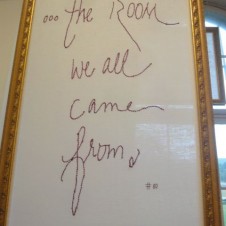 ...the Room
we all
came
from.